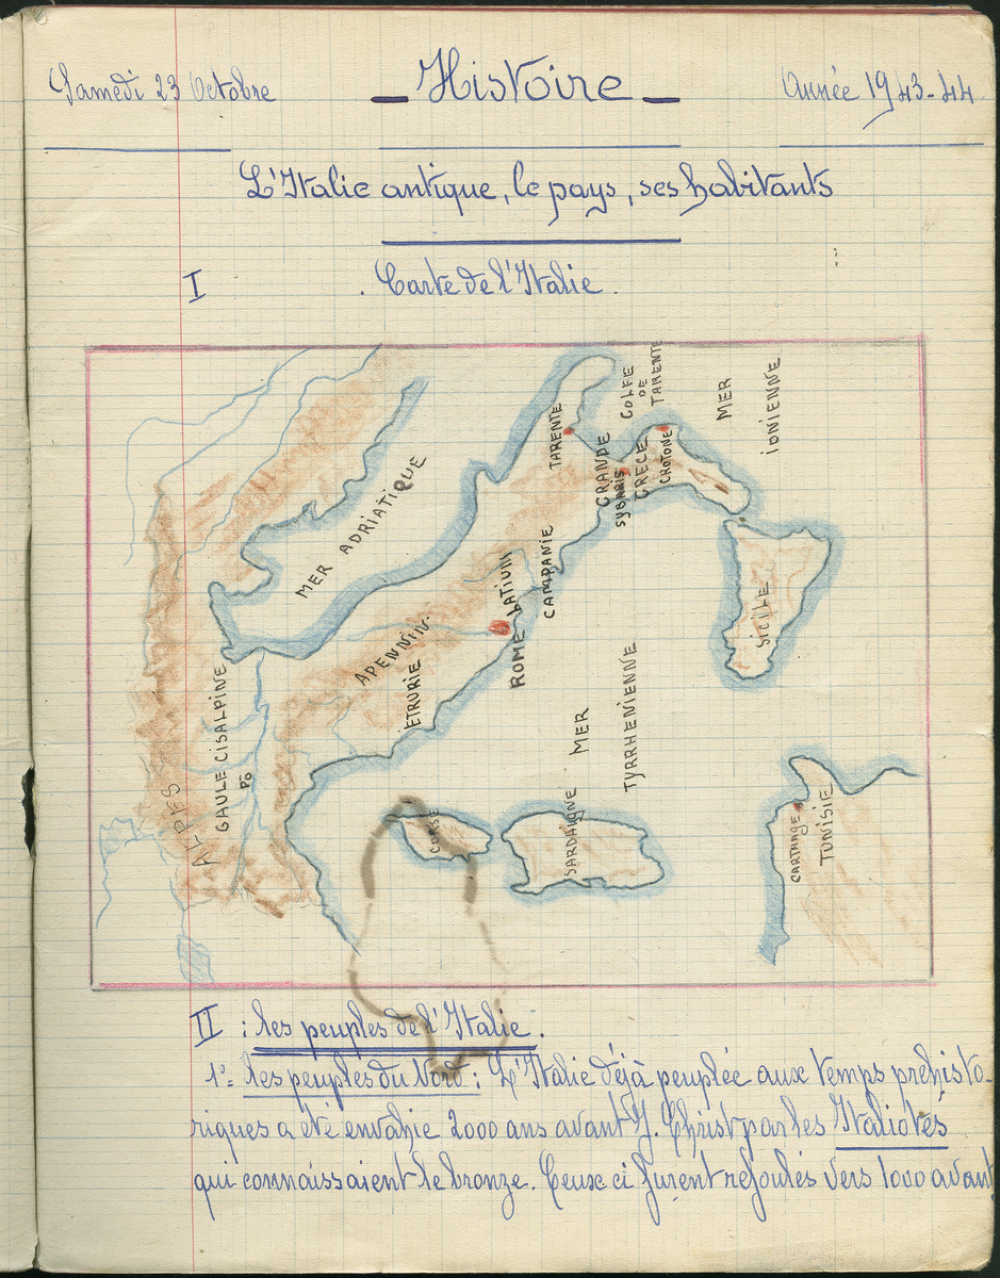 Samedi 23 Octobre
Histoire
Année 1943-44
L'Italie antique, le pays, ses habitants
I
Carte de l'Italie.
MER ADRIATIQUE
TARENTE
GOLFE
DE
TARENTE
MER
IONIENNE
GRANDE
GRECE
SYBARIS
CROTONE
CAMPANIE
LATIUM
ROME
APENNIN
ETRURIE
SICILE
MER
TYRRHENIENNE
GAULE CISALPINE
PÔ
ALPES
CORSE
SARDAIGNE
CARTHAGE
TUNISIE
II : les peuples de l'Italie.
1º= les peuples du Nord : L'Italie déjà peuplée aux temps préhisto-
riques a été envahie 2000 ans avant J. Christ par les Italiotes
qui connaissaient le bronze. Ceux ci furent refoulés vers 1000 avant